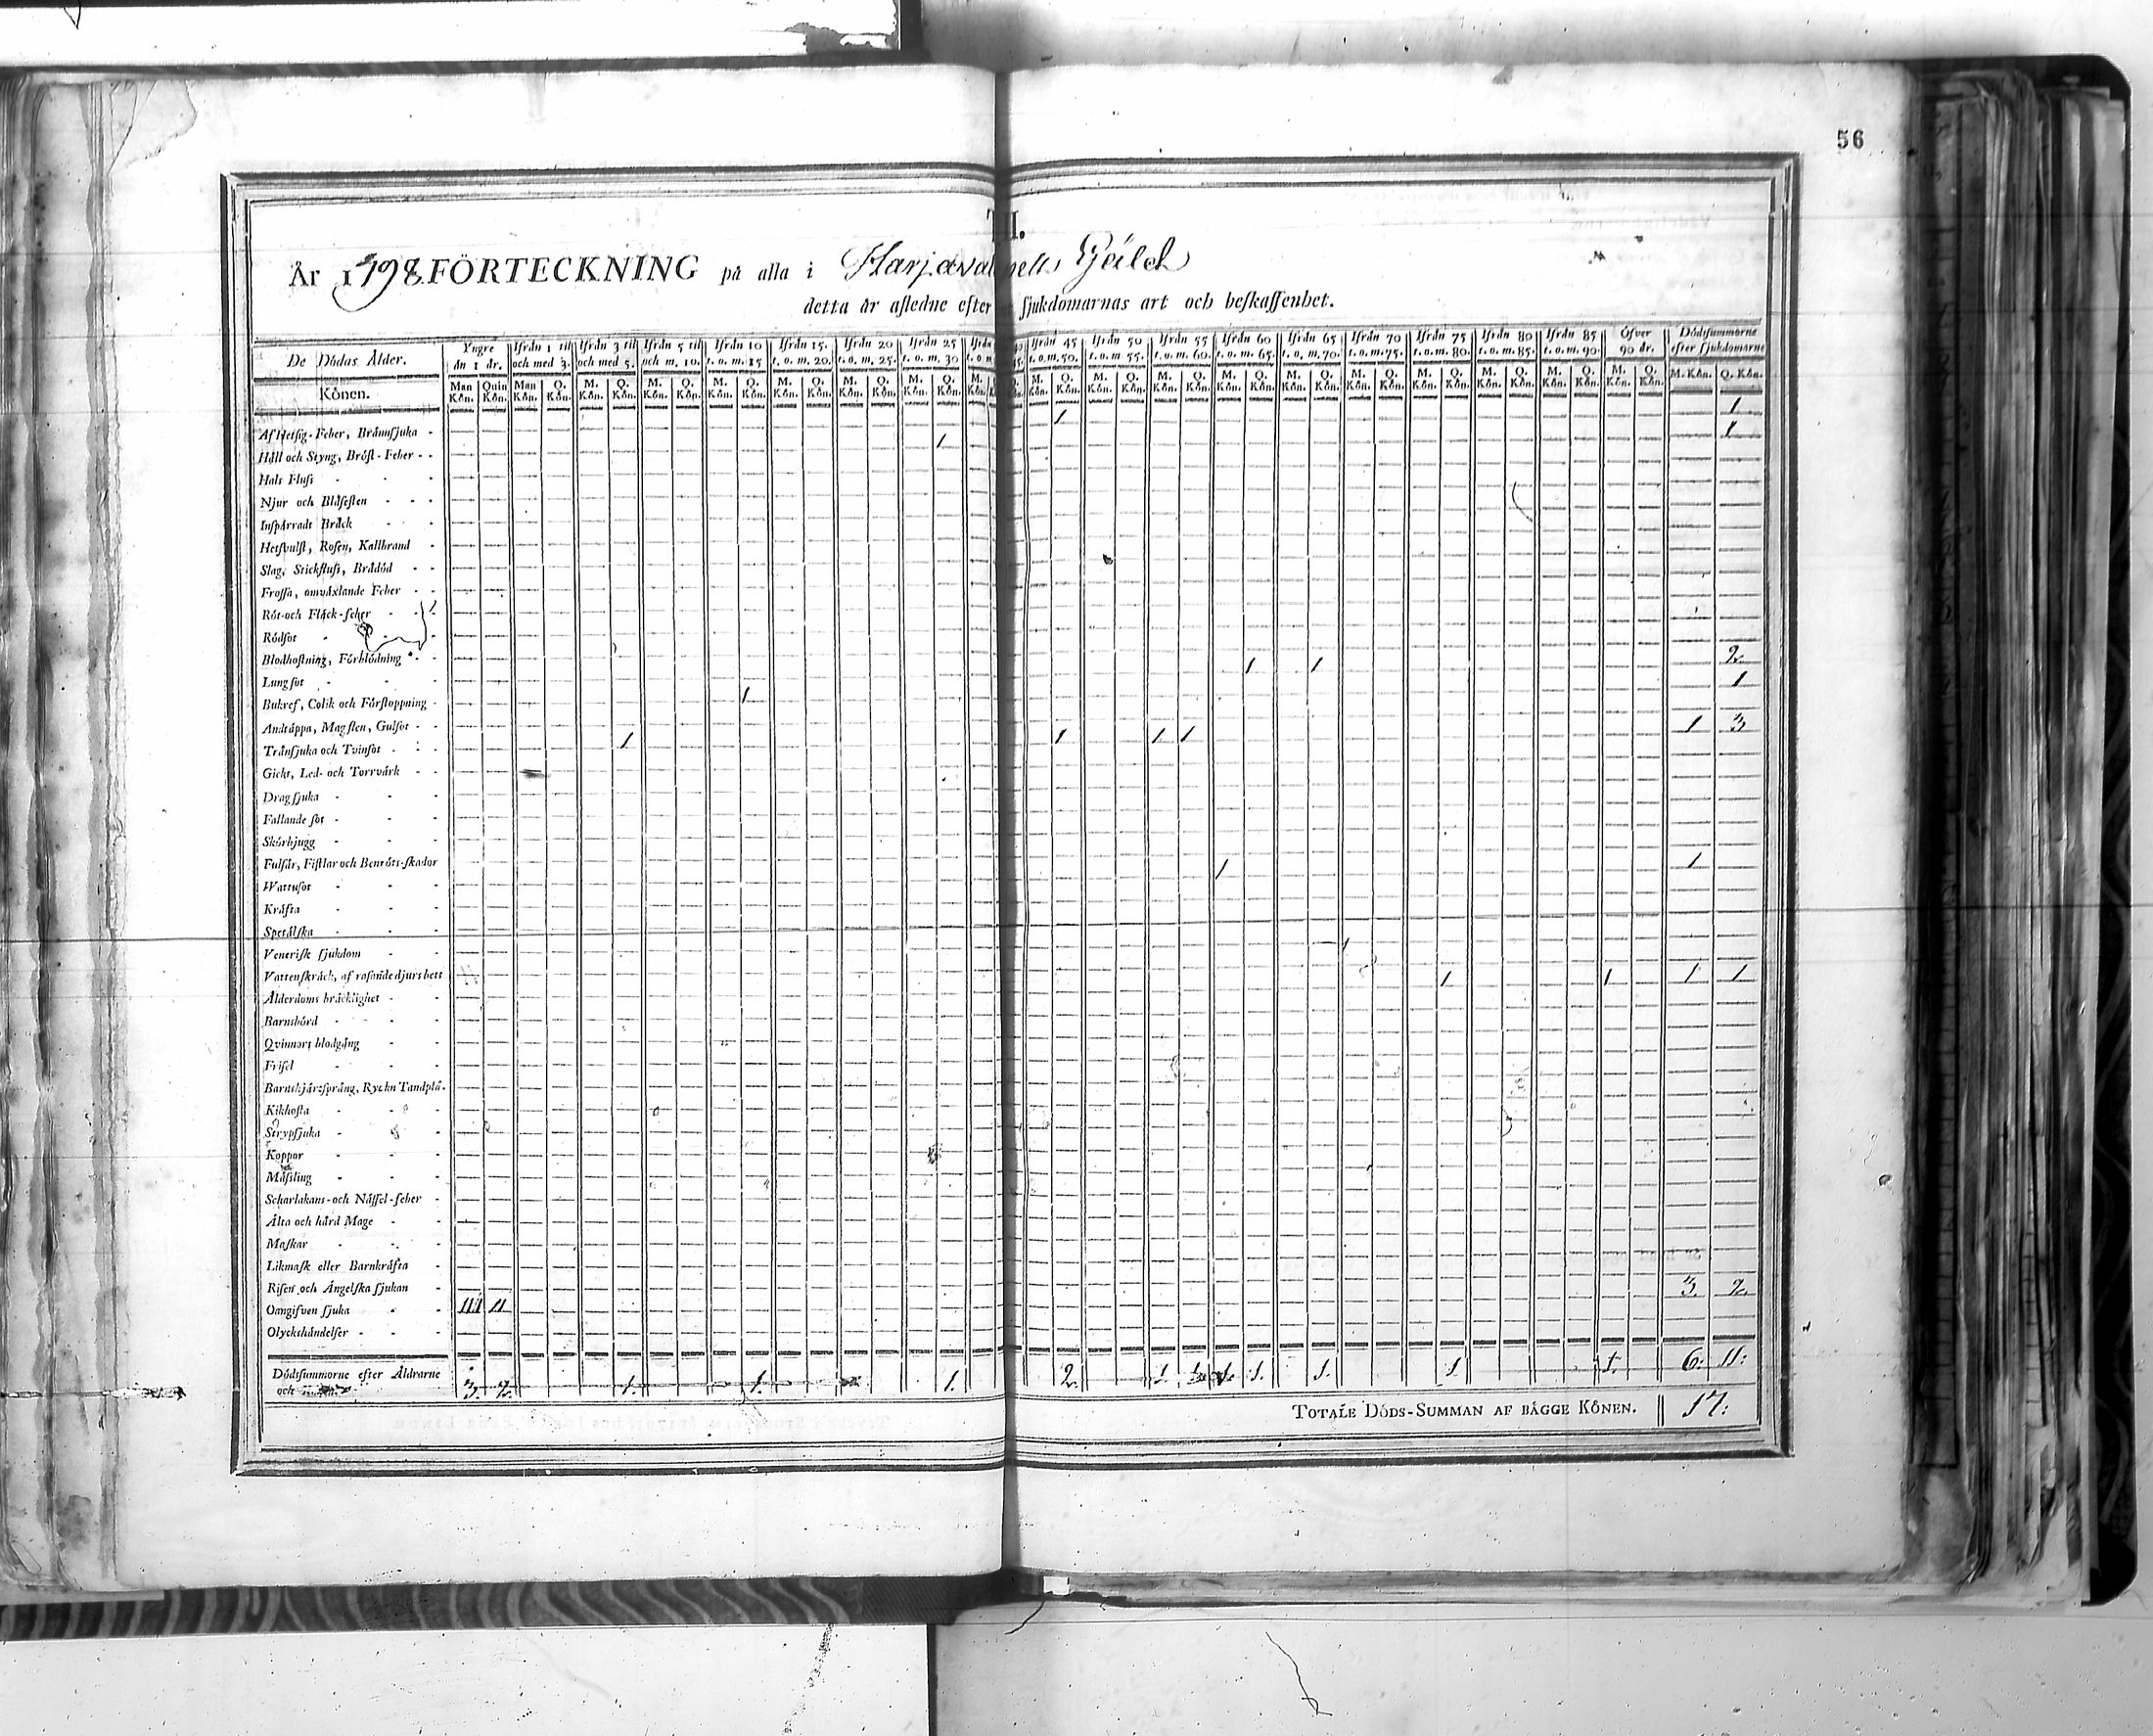 56
År 1798. FÖRTECKNING på alla i
detta år afledne efter sjukdomarnas art och beskaffenhet.
De Dödas Ålder. Yngre än 1 år. Ifrån 1 til och med 3. Ifrån 3 til och med 5. Ifrån 5 til och m. 10. Ifrån 10 t. o. m. 15 Ifrån 15. t. o. m. 20. Ifrån 20 t. o. m. 25. Ifrån 25 t. o. m. 30 Ifrån 45 t. o. m. 50. Ifrån 50 t. o. m 55. Ifrån 55 t. o. m. 60. Ifrån 60 t. o. m. 65. Ifrån 65 t. o. m. 70. Ifrån 70 t. o. m. 75. Ifrån 75 t. o. m. 80. Ifrån 80 t. o. m. 85. Ifrån 85 t. o. m. 90. Öfver 90 år. Dödssummorne efter sjukdomarne
Könen. Man Kön. Quin Kön. Man Kön. Q. Kön. M. Kön. Q. Kön. M. Kön. Q. Kön. M. Kön. Q. Kön. M. Kön. Q. Kön. M. Kön. Q. Kön. M. Kön. Q. Kön. M. Kön. M. Kön. Q. Kön. M. Kön. Q. Kön. M. Kön. Q. Kön. M. Kön. Q. Kön. M. Kön. Q. Kön. M. Kön. Q. Kön. M. Kön. Q. Kön. M. Kön. Q. Kön. M. Kön. Q. Kön. M. Kön. Q. Kön. M. Kön. Q. Kön.
Af Hetsig-Feber, Brännsjuka 1 1
Håll och Styng, Bröst-Feber 1 1
Hals Fluss
Njur och Blåsesten
Inspärradt Bråck
Hetsvulst, Rosen, Kallbrand
Slag, Stickfluss, Brådöd
Frossa, omväxlande Feber
Röt-och Fläck-feber
Rödsot
Blodhostning, Förblödning
Lungsot 1 1 2
Bukref, Colik och Förstoppning 1 1
Andtäppa, Magsten, Gulsot
Trånsjuka och Tvinsot 1 1 1 1 1 3
Gickt, Led- och Torrvärk
Dragsjuka
Fallande sot
Skörbjugg
Fulsår, Fistlar och Benröts-skador
Wattusot 1 1
Kräfta
Spetälska
Venerisk sjukdom
Vattenskräck, af rasande djurs bett
Ålderdoms bräcklighet 1 1 1 1
Barnsbörd
Qvinnors blodgång
Frisel
Barnshjärtsprång, Ryckn Tandplå.
Kikhosta
Strypsjuka
Koppor
Mässling
Scharlakans-och Nässel-feber
Älta och hård Mage
Maskar
Likmask eller Barnkräfta
Risen och Ängelska sjukan
Oangifven sjuka III II 3. 2.
Olyckshändelser
Dödssummorne efter Åldrarne 3. 2. 1. 1. 1. 2. 1. 1. 1. 1. 1. 1. 6: 11:
och
TOTALE DÖDS-SUMMAN AF BÄGGE KÖNEN. 17: